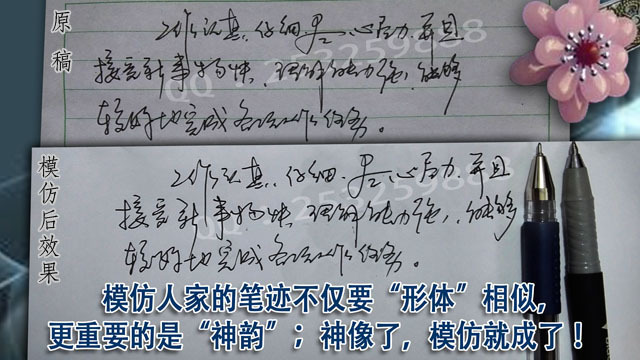 原稿
工作认真、仔细、尽心尽力、并且
接受新事物快、理解能力强、能够
较好地完成各项工作任务。
QQ:253259888
模仿后效果
工作认真、仔细、尽心尽力、并且
接受新事物快、理解能力强、能够
较好地完成各项工作任务。
QQ:253259888
模仿人家的笔迹不仅要“形体”相似，
更重要的是“神韵”；神像了，模仿就成了！